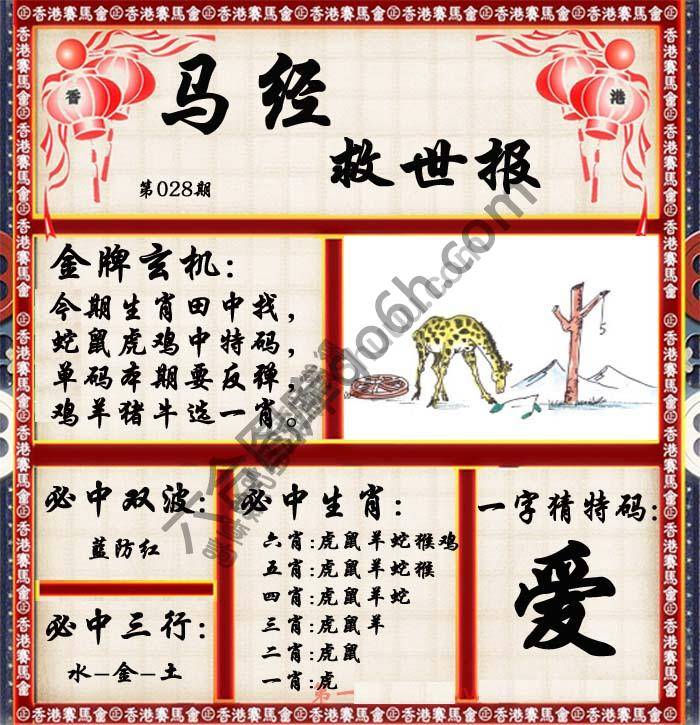 香港賽馬會
香
港
马经
救世报
第028期
金牌玄机:
今期生肖田中找,
蛇鼠虎鸡中特码,
单码本期要反弹,
鸡羊猪牛选一肖。
必中双波:
蓝防红
必中三行:
水-金-土
必中生肖:
六肖:虎鼠羊蛇猴鸡
五肖:虎鼠羊蛇猴
四肖:虎鼠羊蛇
三肖:虎鼠羊
二肖:虎鼠
一肖:虎
一字猜特码:
爱
5